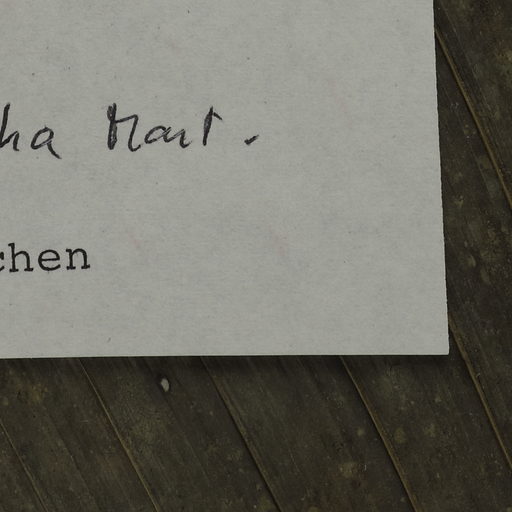 ha Mart.
chen